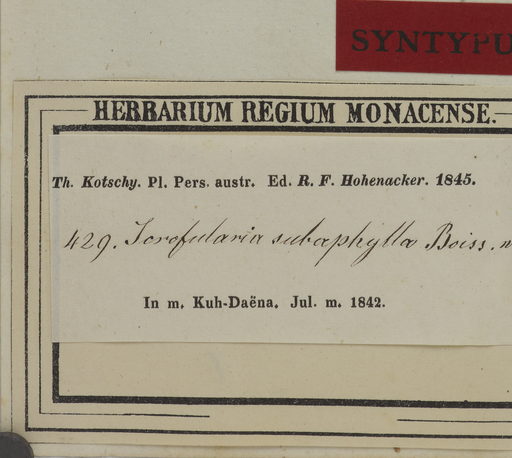 SYNTYPU
HERBARIUM REGIUM MONACENSE.
Th. Kotschy. Pl. Pers. austr. Ed. R. F. Hohenacker. 1845.
429. Scrofularia subaphylla Boiss. n
In m. Kuh-Daëna. Jul. m. 1842.